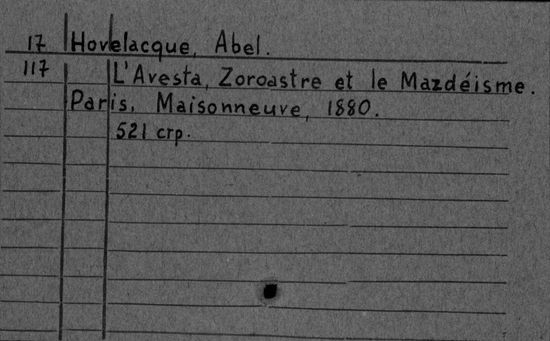 17 Hovelacque, Abel.
117 L'Avesta, Zoroastre et le Mazdéisme.
Paris, Maisonneuve, 1880.
521 стр.